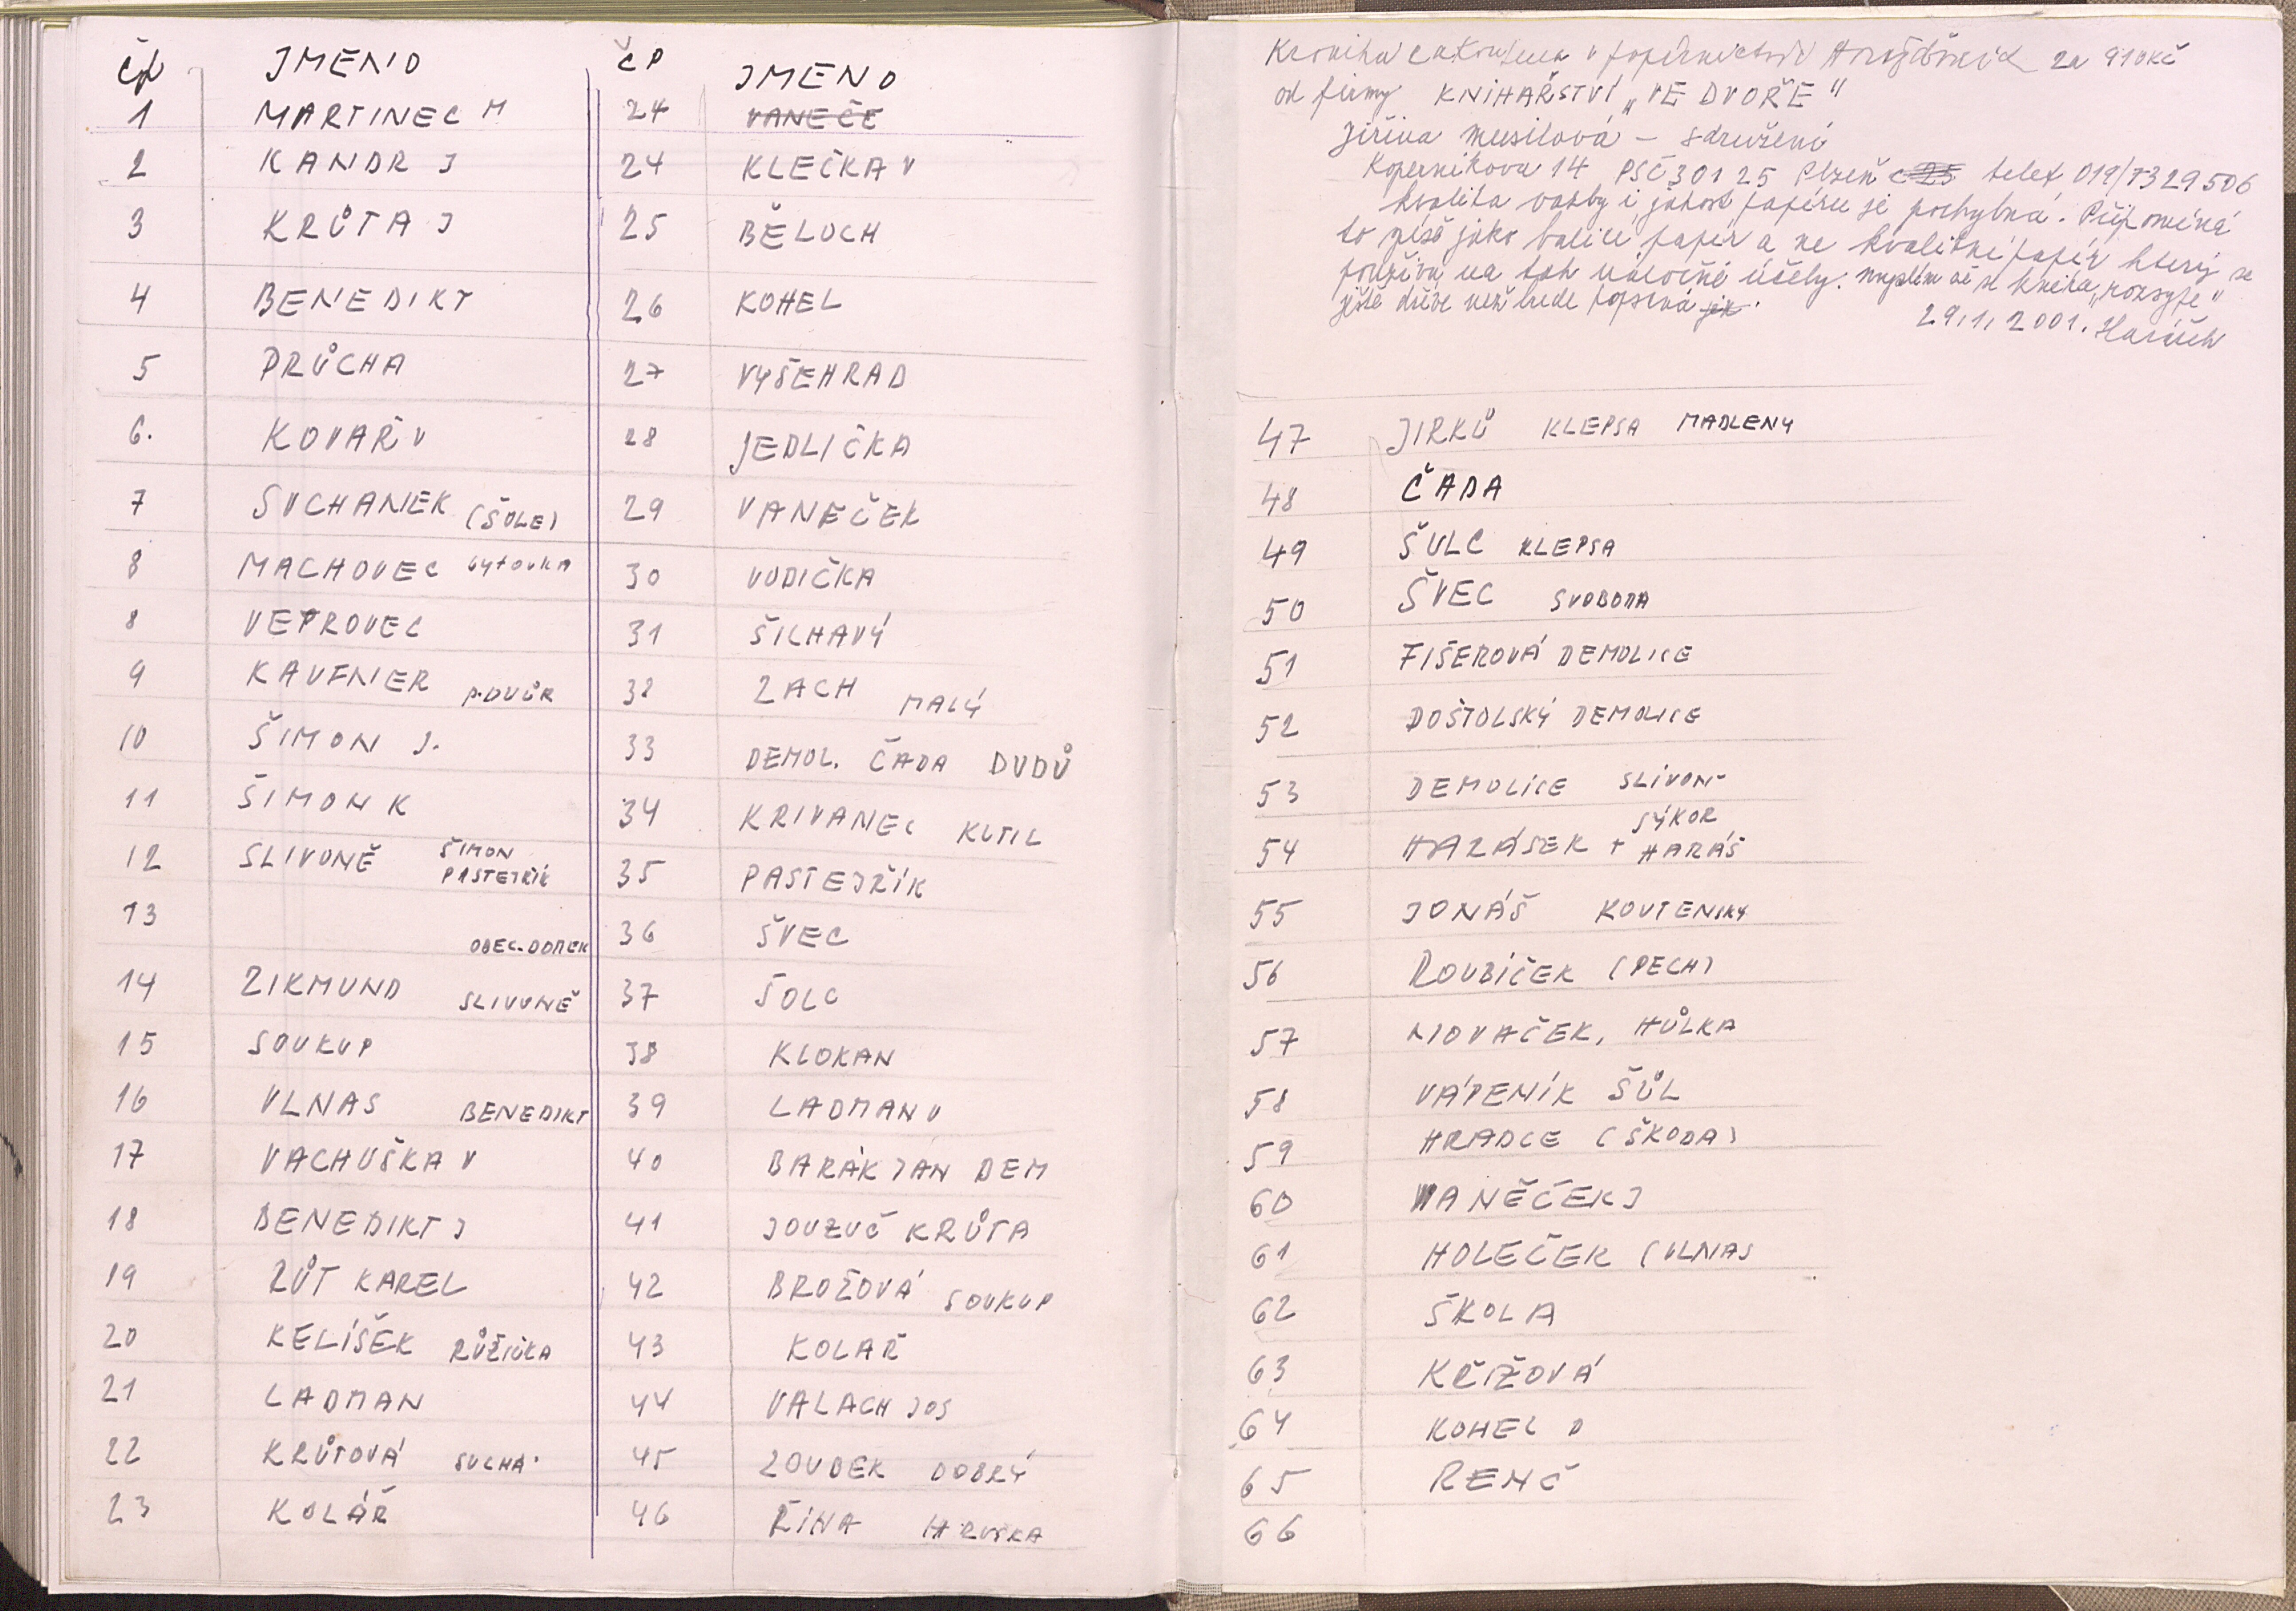 Čp JMENO
1 MARTINEC M
2 KANDR J
3 KRŮTA J
4 BENEDIKT
5 PRŮCHA
6. KOVAŘ V
7 SUCHANEK (ŠULE)
8 MACHOVEC
8 VEPROVEC
9 KAUFNER P. DVŮR
10 ŠIMON J.
11 ŠIMON K
12 SLIVONĚ ŠIMON
PASTEJŘÍK
13 OBEC. DOMEK
14 ZIKMUND SLIVONĚ
15 SOUKUP
16 VLNAS BENEDIKT
17 VACHUŠKA V
18 BENEDIKT J
19 RŮT KAREL
20 KELÍŠEK RŮŽIČKA
21 LADMAN
22 KRŮTOVÁ SUCHÁ
23 KOLÁŘ
ČP JMENO
24 VANEČE
24 KLEČKA V
25 BĚLOCH
26 KOHEL
27 VYŠEHRAD
28 JEDLIČKA
29 VANEČEK
30 VODIČKA
31 ŠILHAVÝ
32 ZACH MALÝ
33 DEMOL. ČADA DUDŮ
34 KRIVANEC KUTIL
35 PASTEJŘÍK
36 ŠVEC
37 ŠOLC
38 KLOKAN
39 LADMAN V
40 BARÁK JAN DEM
41 JOUZUČ KRŮTA
42 BROŽOVÁ SOUKUP
43 KOLAŘ
44 VALACH JOS
45 ZOUBEK DOBRÝ
46 ŘÍHA HRUŠKA
Kronika zakoupena v papírnictví Horažďovice za 910 Kč
od firmy KNIHAŘSTVÍ „VE DVOŘE"
Jiřina Musilová – sdružení
Koperníkova 14 PSČ 301 25 Plzeň telef 019/7329506
kvalita vazby i jakost papíru je pochybná. Připomíná
to spíše jako balicí papír a ne kvalitní papír který se
používá na tak náročné účely. myslím že se kniha „rozsype"
ještě dříve než bude popsaná
29.1.2001.
47 JIRKŮ KLEPSA MADLENY
48 ČADA
49 ŠULC KLEPSA
50 ŠVEC SVOBODA
51 FIŠEROVÁ DEMOLICE
52 DOŠTOLSKÝ DEMOLICE
53 DEMOLICE SLIVON-
SÝKOR
54 HALÁSEK + HARÁŠ
55 JONÁŠ KOUTENSKY
56 ROUBÍČEK (PECH)
57 NOVAČEK, HŮLKA
58 VÁPENÍK ŠŮL
59 HRADCE (ŠKODA)
60 VANĚČEK J
61 HOLEČEK (VLNAS
62 ŠKOLA
63 KŘÍŽOVÁ
64 KOHEL D
65 RENČ
66